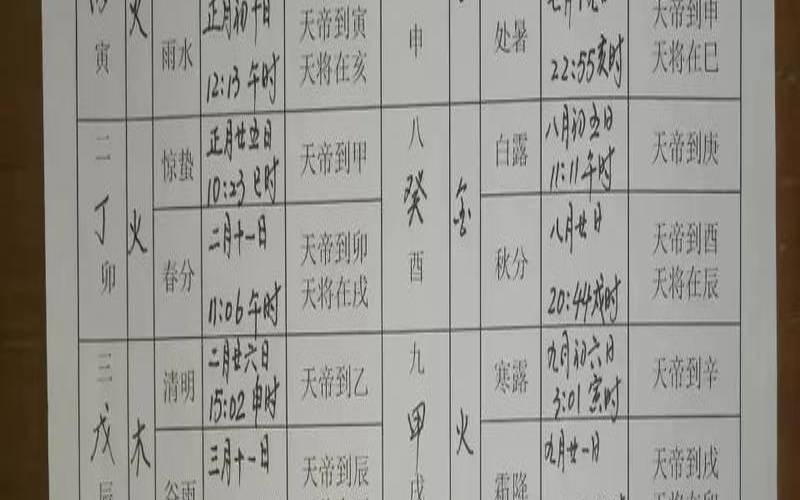 寅
火
雨水
正月初十日
12:13 午时
天帝到寅
天将在亥
申
处暑
22:55 亥时
天帝到申
天将在巳
二
丁
卯
火
惊蛰
正月廿五日
10:23 巳时
天帝到甲
春分
二月十一日
11:06 午时
天帝到卯
天将在戌
八
癸
酉
金
白露
八月初五日
11:11 午时
天帝到庚
秋分
八月廿日
20:44 戌时
天帝到酉
天将在辰
三
戊
辰
木
清明
二月廿六日
15:02 申时
天帝到乙
谷雨
三月十一日
天帝到辰
九
甲
戌
火
寒露
九月初六日
3:01 寅时
天帝到辛
霜降
九月廿一日
天帝到戌